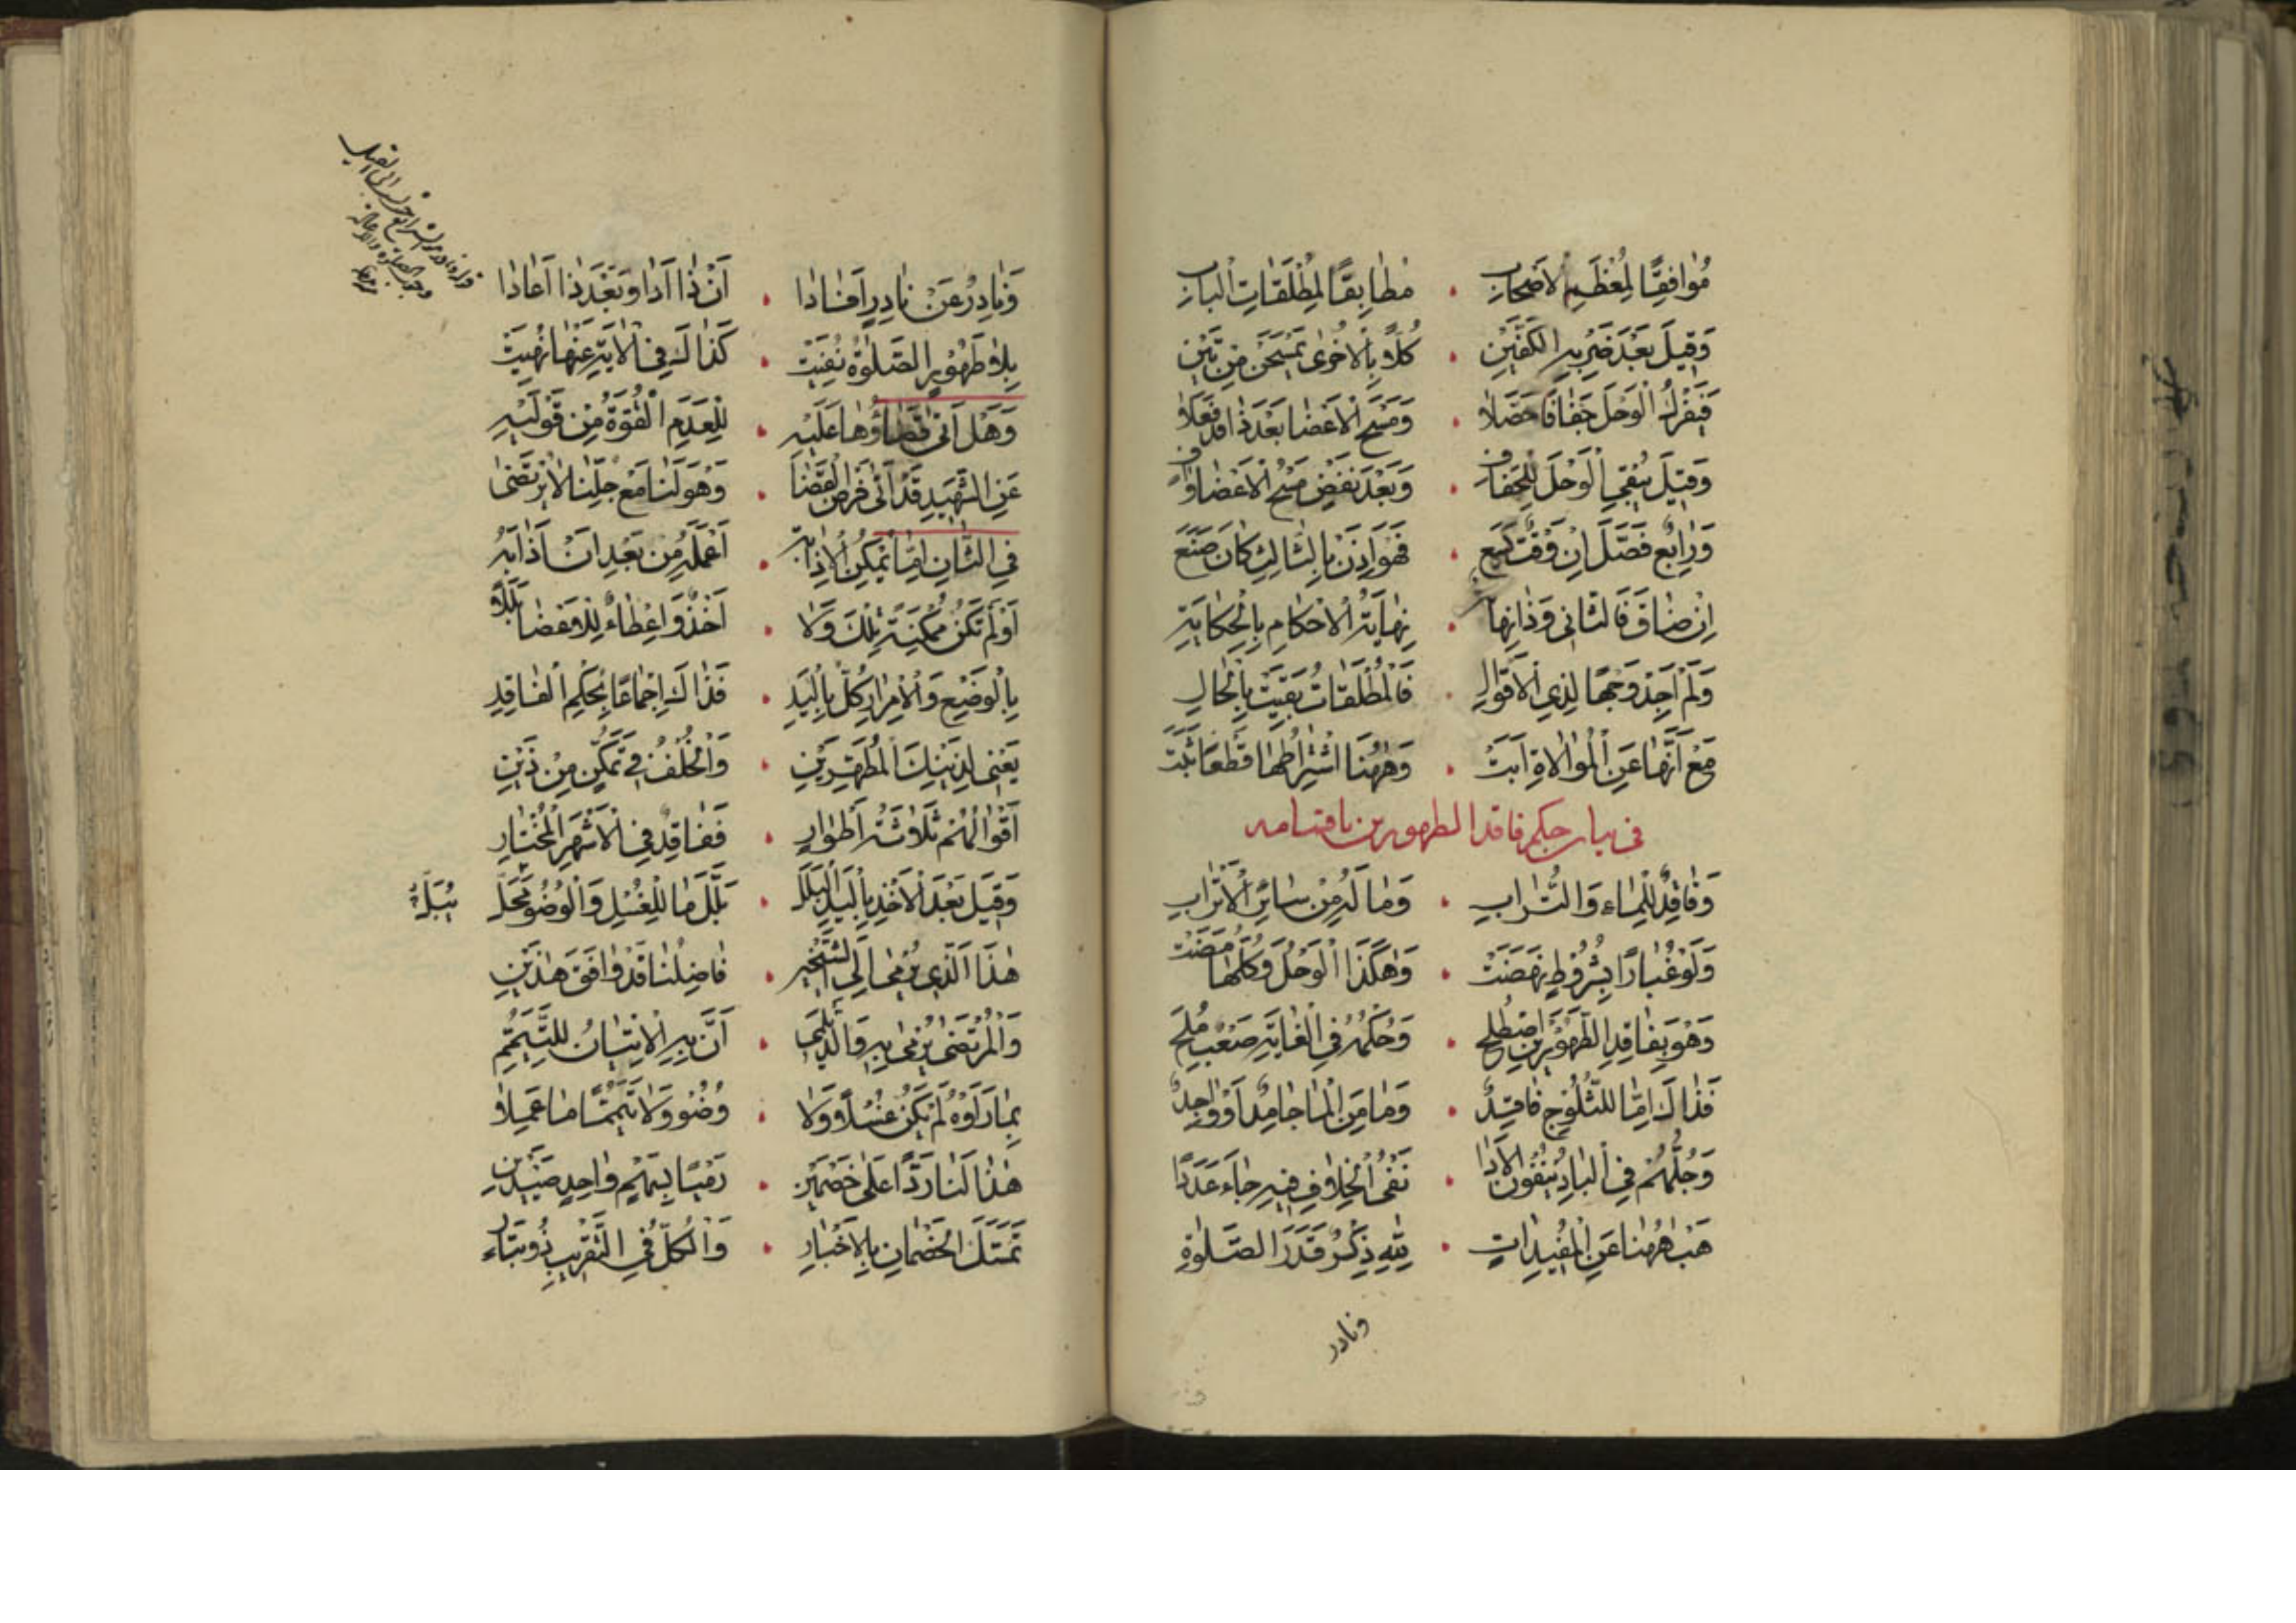 مُوافِقًا لِمُعْظَمِ الاَصْحابِ . مُطابِقًا لِمُطْلَقاتِ الْبابِ
وَقيلَ بَعْدَ ضَرْبِهِ الكَفَّيْنِ . كُلًّا بِالاُخْرى يَمْسَحَنْ مِنْ تَيْنِ
فَيَفْرُكُ الْوَحَلَ جَفافًا حَصَلا . وَمَسْحَ الْاَعْضا بَعْدَ ذا قَدْ فَعَلا
وَقيلَ يُبْقي الْوَحَلَ لِلْجَفافِ . وَبَعْدَ نَفْضٍ مَسْحُ الْاَعْضا وافٍ
وَرابِعٌ فَصَّلَ اِنْ وَقْتٌ يَسَعْ . فَهْوَ اِذَنْ بِالثّالِثِ كانَ صَنَعْ
اِنْ ضاقَ فَالثّاني وَذا نِهايَة . نِهايَةُ الْاَحْكامِ بِالْحِكايَةِ
وَلَمْ اَجِدْ وَجْهًا لِذِي الْاَقْوالِ . فَالْمُطْلَقاتُ بَقِيَتْ بِالْحالِ
مَعْ اَنَّها عَنِ الْمُوالاةِ اَبَتْ . وَهٰهُنا اشْتِراطُها قَطْعًا ثَبَتَ
في بيان حكم فاقد الطهورين باقسامه
وَفاقِدٌ لِلْماءِ وَالتُّرابِ . وَما لَهُ مِنْ سائِرِ الْاَتْرابِ
وَلَوْ غُبارًا بِشُرُوطٍ نَهَضَتْ . وَهٰكَذَا الْوَحَلُ وَكُلُّها مَضَتْ
وَهْوَ بِفاقِدِ الطَّهُورَيْنِ اصْطُلِحْ . وَحُكْمُهُ فِي الْغايَةِ صَعْبٌ مُلَحْ
فَذاكَ اِمّا لِلثُّلُوجِ فاقِدٌ . وَما مِنَ الْما جامِدٌ اَوْ واجِدٌ
وَجُلُّهُمْ فِي الْبادِ يَنْفُونَ الْاَدا . نَفْيُ الْخِلافِ فيهِ جاءَ عَدَدًا
هَبْ هٰهُنا عَنِ الْمُفيداتِ . لِلّٰهِ ذِكْرُ قَدَرِ الصَّلوٰةِ
ونادر
وَنادِرٌ عَنْ نادِرٍ اَفادا . اَنْ ذا اَدا وَبَعْدَ ذا اَعادا
بِلا طَهُورٍ الصَّلوٰةُ نُفِيَتْ . كَذاكَ فِي الْآيَةِ عَنْها نُهِيَتْ
وَهَلْ اَتى قَضاؤُها عَلَيْهِ . لِلْعَدَمِ الْقُوَّةُ مِنْ قَوْلَيْهِ
عَنِ الشَّهيدِ قَدْ اَتى فَرْضُ الْقَضا . وَهْوَ لَنا مَعْ جُلِّنا لا يُرْتَضى
فِي الثّانِ اِمّا يُمْكِنُ الْاِذابَة . اَعْمَلَهُ مِنْ بَعْدِ اَنْ اَذابَهُ
اَوْ لَمْ تَكُنْ مُمْكِنَةً تِلْكَ وَلا . اَخْذٌ وَاِعْطاءٌ لِلْاَعْضا بَلَلا
بِالْوَضْعِ وَالْاِمْرارِ كُلٌّ بِالْيَدِ . فَذاكَ اِجْماعًا بِحُكْمِ الْفاقِدِ
يَعْني لِذَيْنِكَ الْمُطَهِّرَيْنِ . وَالْخُلْفُ في تَمَكُّنٍ مِنْ ذَيْنِ
اَقْوالُهُمْ ثَلاثَةٌ اَطْوارٍ . فَفاقِدٌ فِي الْاَشْهَرِ الْمُخْتارِ
وَقيلَ بَعْدَ الْاَخْذِ بِالْيَدِ الْبَلَلَ . بَلَّلَ ما لِلْغُسْلِ وَالْوُضُو مَحَلّ
هٰذَا الَّذي يُرْمى اِلَى الشَّيْخَيْنِ . فاضِلُنا قَدْ وافَقَ هٰذَيْنِ
وَالْمُرْتَضى يُرْمى بِهِ وَالدَّيْلَمي . اَنَّ بِهِ الْاِتْيانُ لِلتَّيَمُّمِ
بِما رَاَوْهُ لَمْ يَكُنْ غُسْلًا وَلا . وُضُو وَلا تَيَمُّمًا ما عَمِلا
هٰذا لَنا رَدًّا عَلى خَصْمَيْنِ . رَمْيًا بِسَهْمٍ واحِدٍ صَيْدَيْنِ
تَمَسَّكَ الْخَصْمانِ بِالْاَخْبارِ . وَالْكُلُّ فِي التَّقْريبِ ذُو تَباء